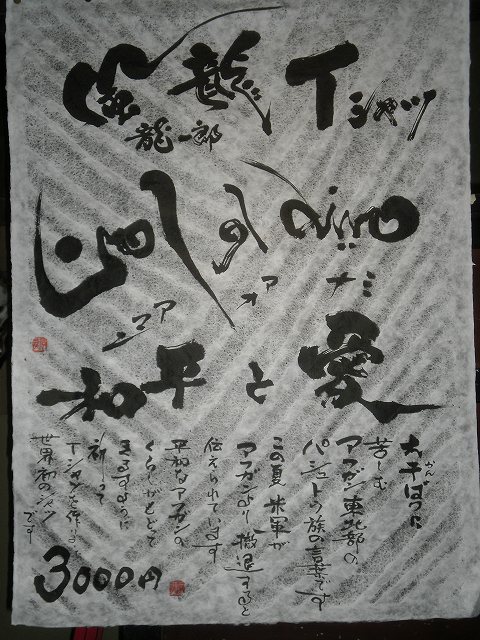 龍 Tシャツ
龍一郎
ミナ
オア
アマン
愛と平和
大干ばつに
かん
苦しむ
アフガン東北部の
パシュトゥ族の言葉です
この夏 米軍が
アフガンより撤退すると
伝えられています
平和なアフガンの
くらしがもどって
きますように
祈って
Tシャツを作りました
世界初のシャツです
3000円